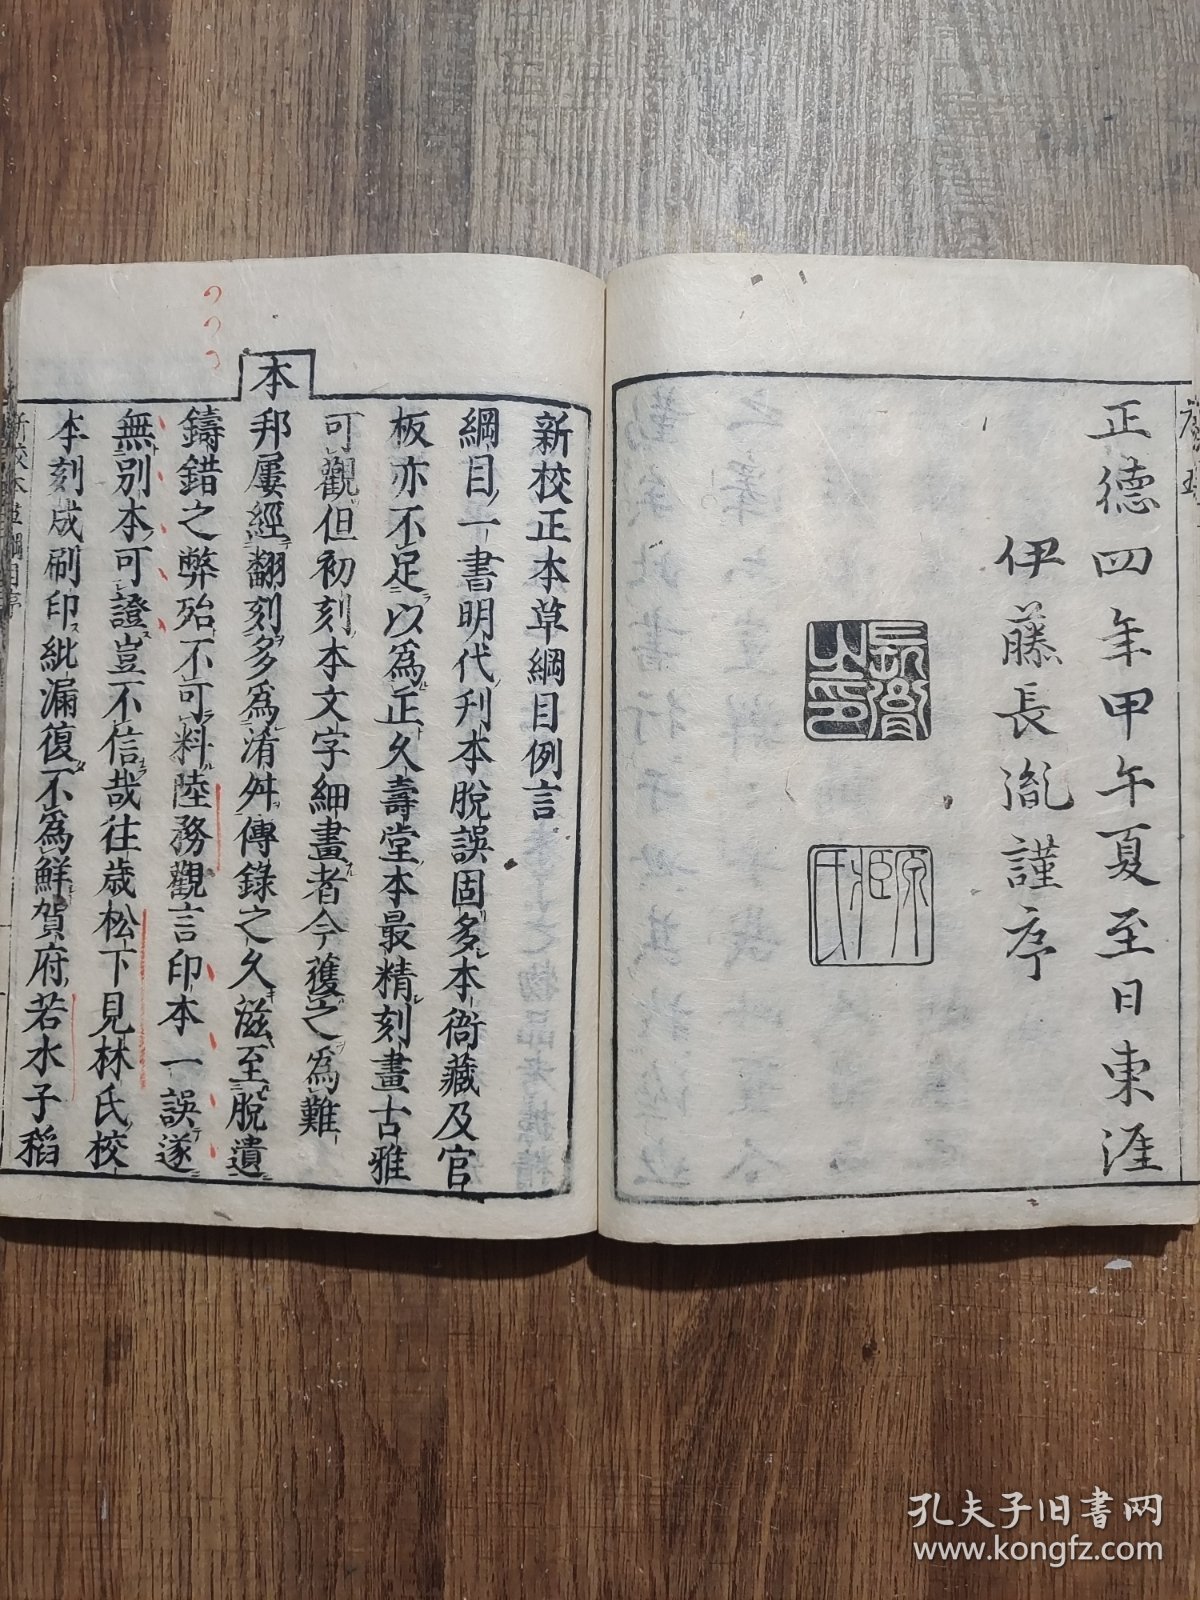 正德四年甲午夏至日東涯
伊藤長胤謹序
新校正本草綱目例言
綱目一書明代刋本脫誤固多本衙藏及官
板亦不足以為正久壽堂本最精刻畫古雅
可觀但初刻本文字細畫者今獲之為難
本
邦屢經翻刻多為淆舛傳錄之久滋至脫遺
鑄錯之弊殆不可料陸務觀言印本一誤遂
無別本可證豈不信哉往歲松下見林氏校
本刻成刷印紕漏復不為鮮賀府若水子稻
孔夫子旧書网
www.kongfz.com